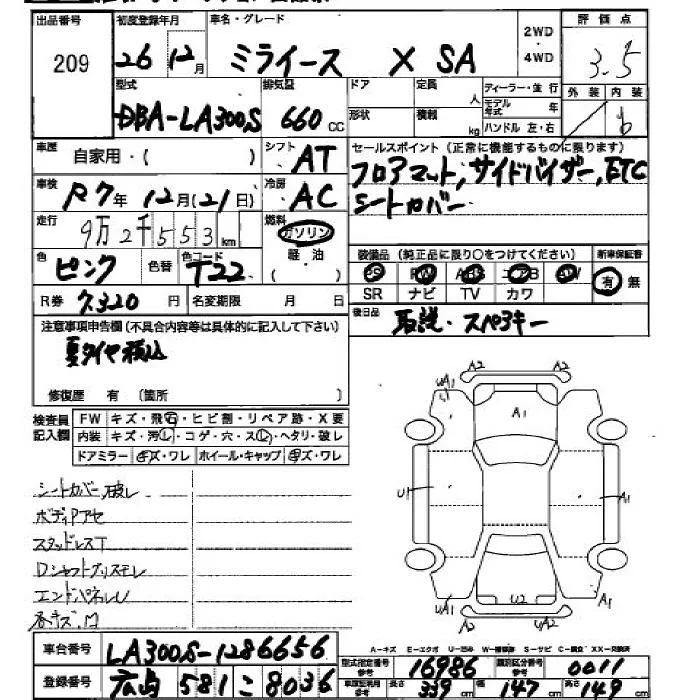 出品番号 初度登録年月 車名・グレード 2WD・4WD 評価点
209 26 12月 ミライース X SA 3.5
型式 排気量 ドア 定員 人 ディーラー・並行 外装 内装
DBA-LA300S 660cc 形状 積載 kg モデル年式 年 ハンドル 左・右 b
車歴 自家用・( ) シフト AT セールスポイント(正常に機能するものに限ります)
フロアマット,サイドバイザー,ETC
車検 R7年12月(21日) 冷房 AC シートカバー
走行 9万2千553km 燃料 ガソリン 軽・油 ( )
色 ピンク 色替 色コード T22 装備品(純正品に限り○をつけてください) 新車保証書
PS PW ABS エアB AW 有 無
R券 7,320円 名変期限 月 日 SR ナビ TV カワ
注意事項申告欄(不具合内容等は具体的に記入して下さい) 後日品 取説・スペアキー
夏タイヤ積込
修復歴 有 〔箇所 〕
検査員記入欄 FW キズ・飛石・ヒビ割・リペア跡・X要
内装 キズ・汚し・コゲ・穴・スレ・ヘタリ・破レ
ドアミラー キズ・ワレ ホイール・キャップ キズ・ワレ
A2 A2
uA1 A1
U1 A1
uA1 U2 A1
A2 uA2
シートカバー破レ
ボディアセ
スタッドレスT
Dシャフトブリスモレ
エンドパネルU
各キズ、凹
車台番号 LA300S-1286656
A-キズ E-エクボ U-凹み W-補修跡 S-サビ C-腐食 XX-交換済
型式指定番号参考 16986 類別区分番号参考 0011
登録番号 広島 581 こ 8036
長さ 339cm 幅 147cm 高さ 149cm